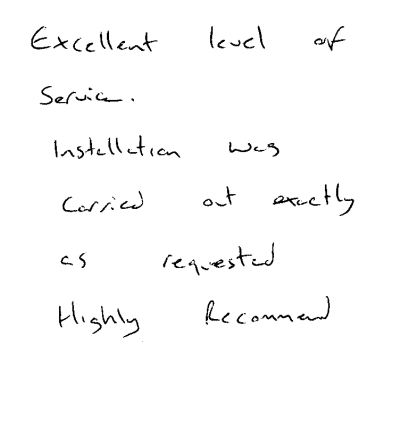 Excellent level of
Service.
Installation was
Carried out exactly
as requested
Highly Recommend